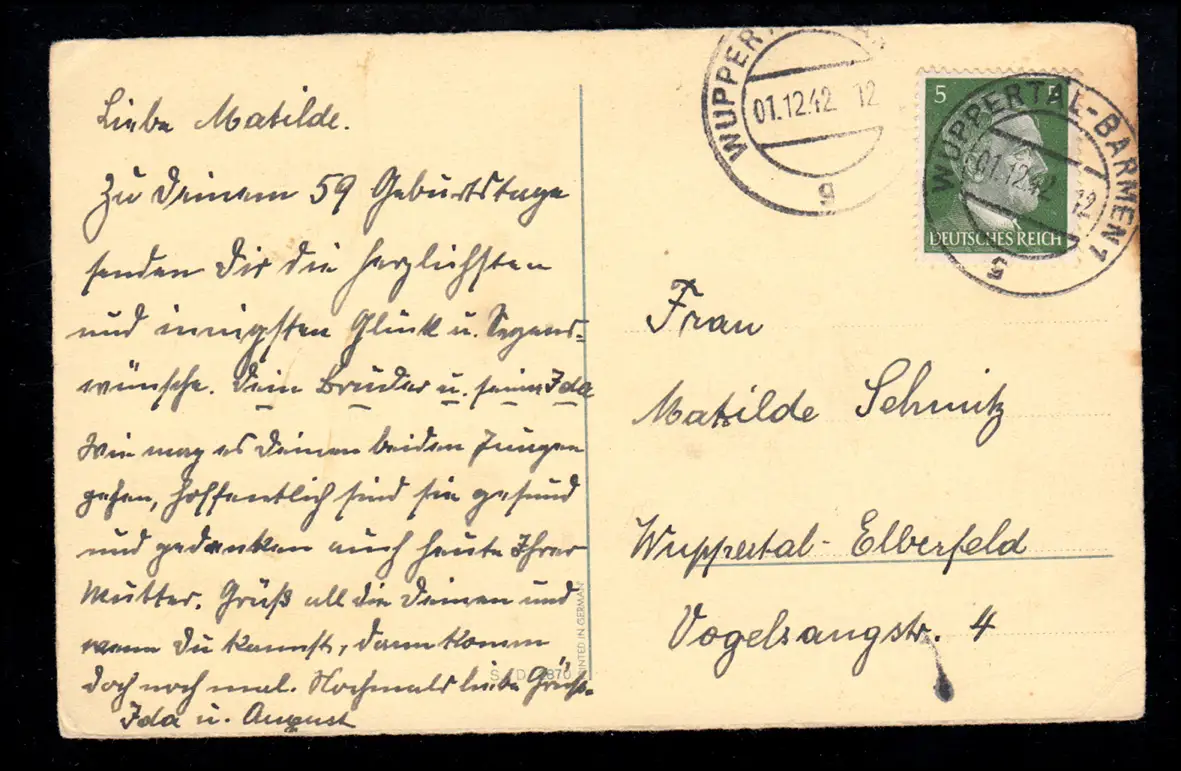 Liebe Matilde.
Zu Deinem 59 Geburtstage
senden Dir die herzlichsten
und innigsten Glück u. Segens=
wünsche. Dein Bruder u. seine Ida
Wie mag es Deinen beiden Jungen
gehen, hoffentlich sind sie gesund
und gedenken auch heute Ihrer
Mutter. Grüß all die Deinen und
wenn Du kannst, dann komm
doch noch mal. Nochmals liebe Grüße.
Ida u. August
PRINTED IN GERMANY
WUPPERTAL-BARMEN
01.12.42 12
g
5 5
DEUTSCHES REICH
WUPPERTAL-BARMEN 1
01.12.42 12
g
Frau
Matilde Schmitz
Wuppertal-Elberfeld
Vogelsangstr. 4